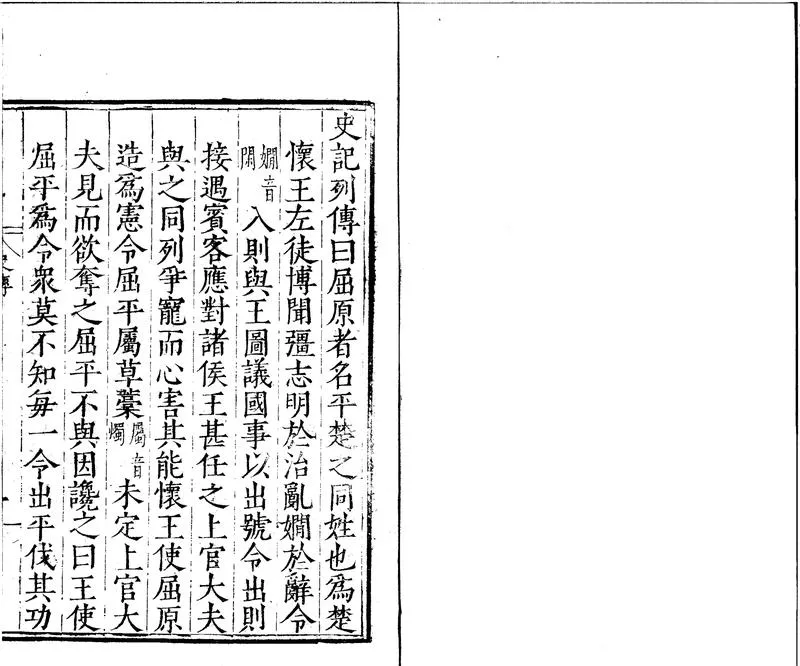 史記列傳曰屈原者名平楚之同姓也爲楚
懷王左徒博聞彊志明於治亂嫺於辭令
嫺音閑入則與王圖議國事以出號令出則
接遇賓客應對諸侯王甚任之上官大夫
與之同列爭寵而心害其能懷王使屈原
造爲憲令屈平屬草藁屬音燭未定上官大
夫見而欲奪之屈平不與因讒之曰王使
屈平爲令衆莫不知每一令出平伐其功